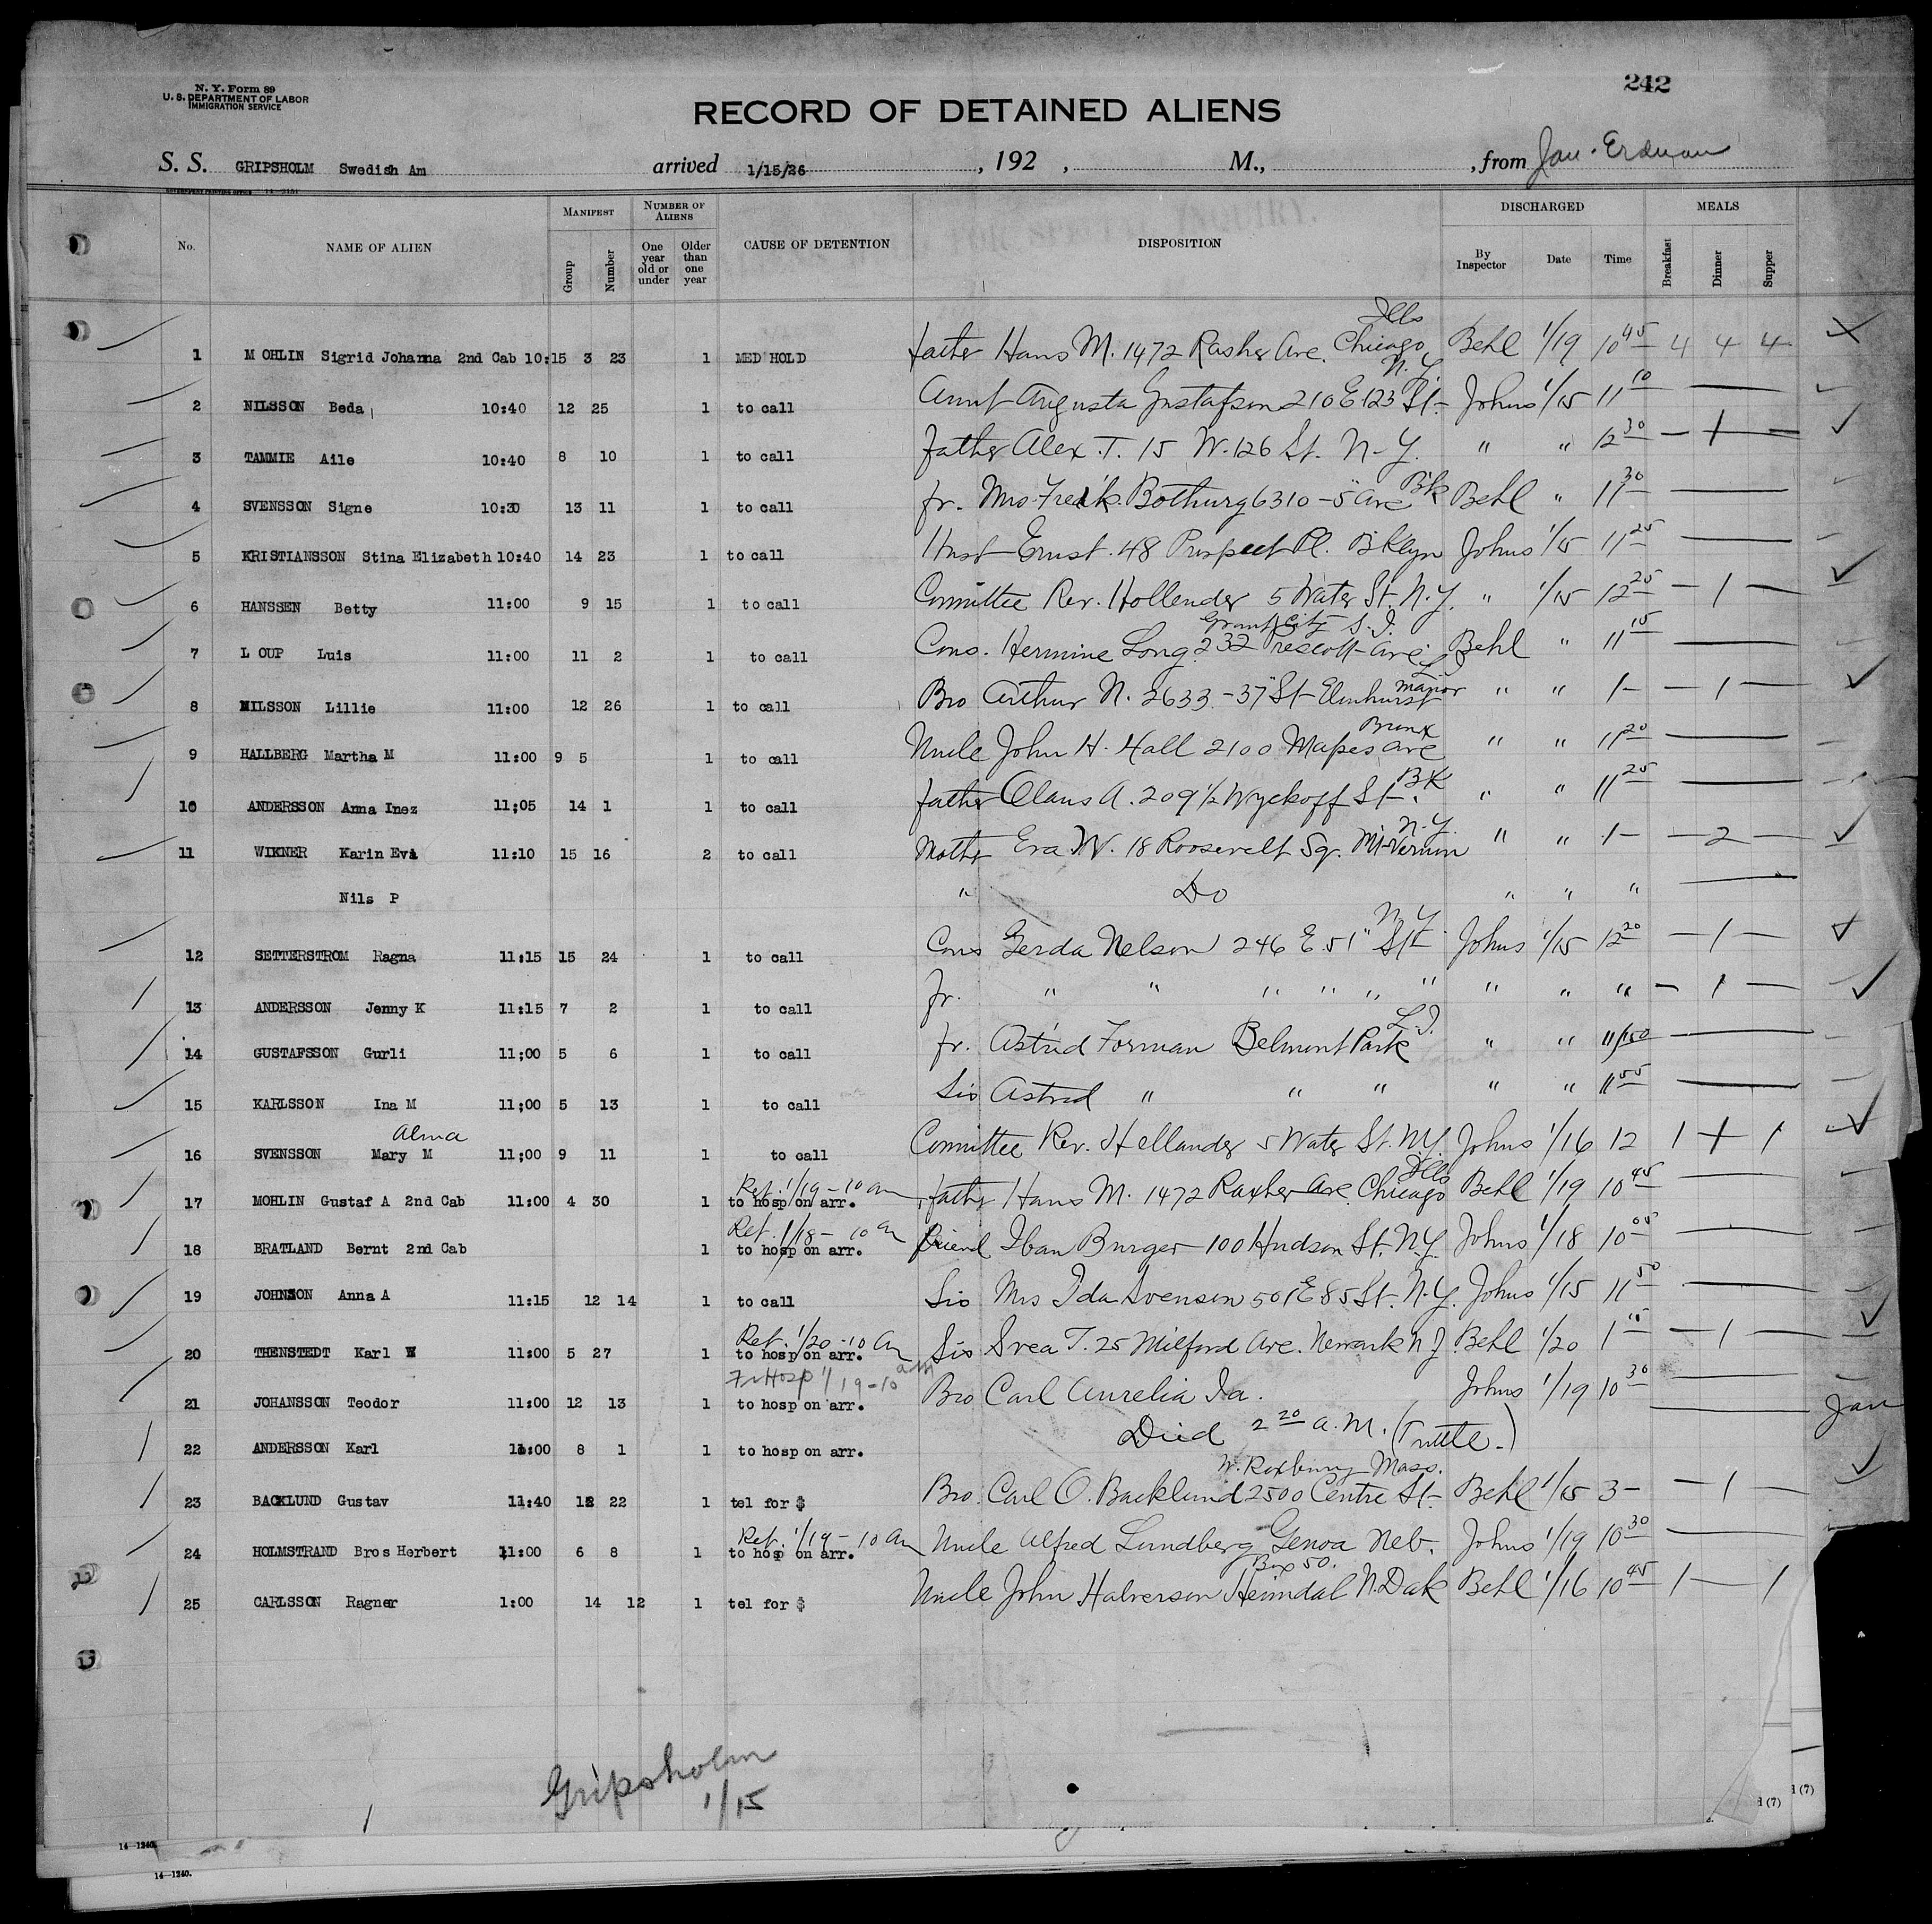 N. Y. Form 89
U. S. DEPARTMENT OF LABOR
IMMIGRATION SERVICE
242
RECORD OF DETAINED ALIENS
S. S. GRIPSHOLM Swedish Am arrived 1/15/26, 192 , M., , from Jan. Erdman
No. NAME OF ALIEN MANIFEST Group Number NUMBER OF ALIENS One year old or under Older than one year CAUSE OF DETENTION DISPOSITION DISCHARGED By Inspector Date Time MEALS Breakfast Dinner Supper
1 MOHLIN Sigrid Johanna 2nd Cab 10:15 3 23 1 MED HOLD father Hans M. 1472 Rasher Ave. Chicago Ills Behl 1/19 10 45 4 4 4
2 NILSSON Beda 10:40 12 25 1 to call Aunt Augusta Gustafson 210 E 123 St. N.Y. Johns 1/15 11 10
3 TAMMIE Aile 10:40 8 10 1 to call father Alex T. 15 W. 126 St. N.Y. " " 12 30 — 1 —
4 SVENSSON Signe 10:30 13 11 1 to call fr. Mrs Fredk. Bothurg 6310 - 5" Ave Bk Behl " 11 30
5 KRISTIANSSON Stina Elizabeth 10:40 14 23 1 to call Husb Ernst. 48 Prospect Pl. Bklyn Johns 1/15 11 25
6 HANSSEN Betty 11:00 9 15 1 to call Committee Rev. Hollender 5 Water St. N.Y. " 1/15 12 25 — 1 —
7 LOUP Luis 11:00 11 2 1 to call Cons. Hermine Long 232 Prescott Ave Grant City S.I. Behl " 11 15
8 NILSSON Lillie 11:00 12 26 1 to call Bro Arthur N. 2633 - 37" St Elmhurst Manor " " 1 — — 1 —
9 HALLBERG Martha M 11:00 9 5 1 to call Uncle John H. Hall 2100 Mapes Ave Bronx " " 11 20
10 ANDERSSON Anna Inez 11;05 14 1 1 to call father Claus A. 209 1/2 Wyckoff St. Bk " " 11 25
11 WIKNER Karin Evi 11:10 15 16 2 to call Mother Eva W. 18 Roosevelt Sq. Mt Vernon N.Y. " " 1 — — 2 —
Nils P " Do " " "
12 SETTERSTROM Ragna 11:15 15 24 1 to call Cons Gerda Nelson 246 E. 51" St N.Y. Johns 1/15 12 20 — 1 —
13 ANDERSSON Jenny K 11:15 7 2 1 to call fr. " " " " " " " " " — 1 —
14 GUSTAFSSON Gurli 11;00 5 6 1 to call fr. Astrid Forman Belmont Park L.I. " "
15 KARLSSON Ina M 11;00 5 13 1 to call Sis Astrid " " " " " 11 55
16 SVENSSON Alma Mary M 11;00 9 11 1 to call Committee Rev. Hellander 5 Water St. N.Y. Johns 1/16 12 1 1 1
17 MOHLIN Gustaf A 2nd Cab 11:00 4 30 1 to hosp on arr. Ret. 1/19 - 10 am father Hans M. 1472 Rasher Ave Chicago Ills Behl 1/19 10 45
18 BRATLAND Bernt 2nd Cab 1 to hosp on arr. Ret. 1/18 - 10 am friend Iban Burger - 100 Hudson St. N.Y. Johns 1/18 10 05
19 JOHNSON Anna A 11:15 12 14 1 to call Sis Mrs Ida Svenson 501 E 85 St. N.Y. Johns 1/15 11 50
20 THENSTEDT Karl W 11:00 5 27 1 to hosp on arr. Ret. 1/20 - 10 am Sis Svea T. 25 Milford Ave. Newark N.J. Behl 1/20 1 — 1 —
21 JOHANSSON Teodor 11:00 12 13 1 to hosp on arr. Fr Hosp 1/19 - 10 am Bro Carl Aurelia Ia. Johns 1/19 10 30
22 ANDERSSON Karl 11:00 8 1 1 to hosp on arr. Died 2 20 a.m. (Tuttle.) Jan
23 BACKLUND Gustav 11:40 12 22 1 tel for $ Bro. Carl O. Backlund 2500 Centre St W. Roxbury Mass. Behl 1/15 3 — — 1 —
24 HOLMSTRAND Bros Herbert 11:00 6 8 1 to hosp on arr. Ret. 1/19 - 10 am Uncle Alfred Lundberg Genoa Neb. Johns 1/19 10 30
25 CARLSSON Ragner 1:00 14 12 1 tel for $ Uncle John Halverson Box 50. Heimdal N. Dak Behl 1/16 10 45 1 — 1
Gripsholm
1/15
14—1240.
14—1240.
d (7)
d (7)